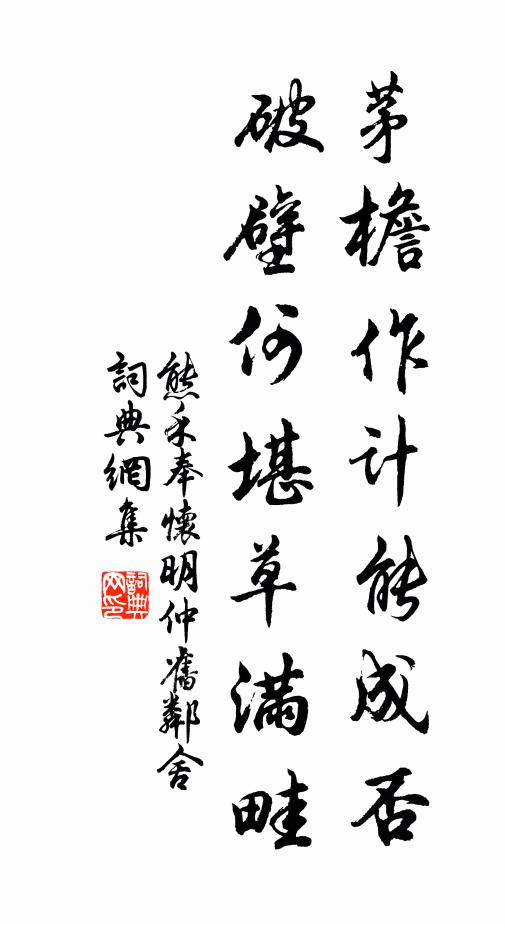 茅檐作計能成否
破壁何堪草滿畦
熊禾奉懷明仲舊鄰舍
詞典網集
詞典网印